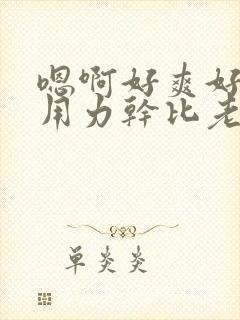 嗯啊好爽好
用力幹比老
单炎炎